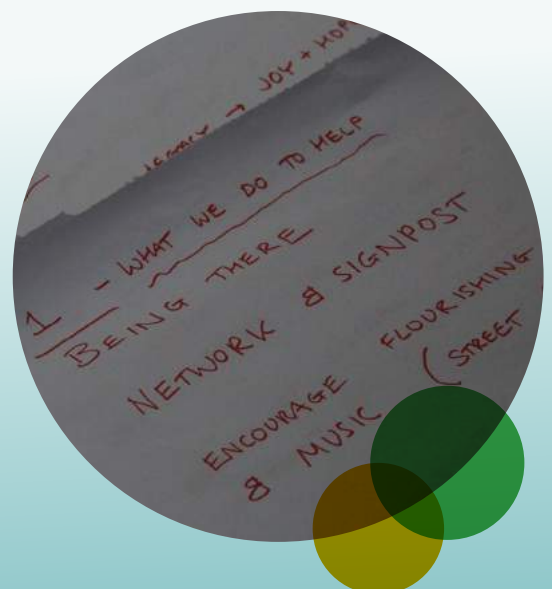 LEGACY → JOY + HOPE
1 - WHAT WE DO TO HELP
BEING THERE
NETWORK & SIGNPOST
ENCOURAGE FLOURISHING
& MUSIC (STREET